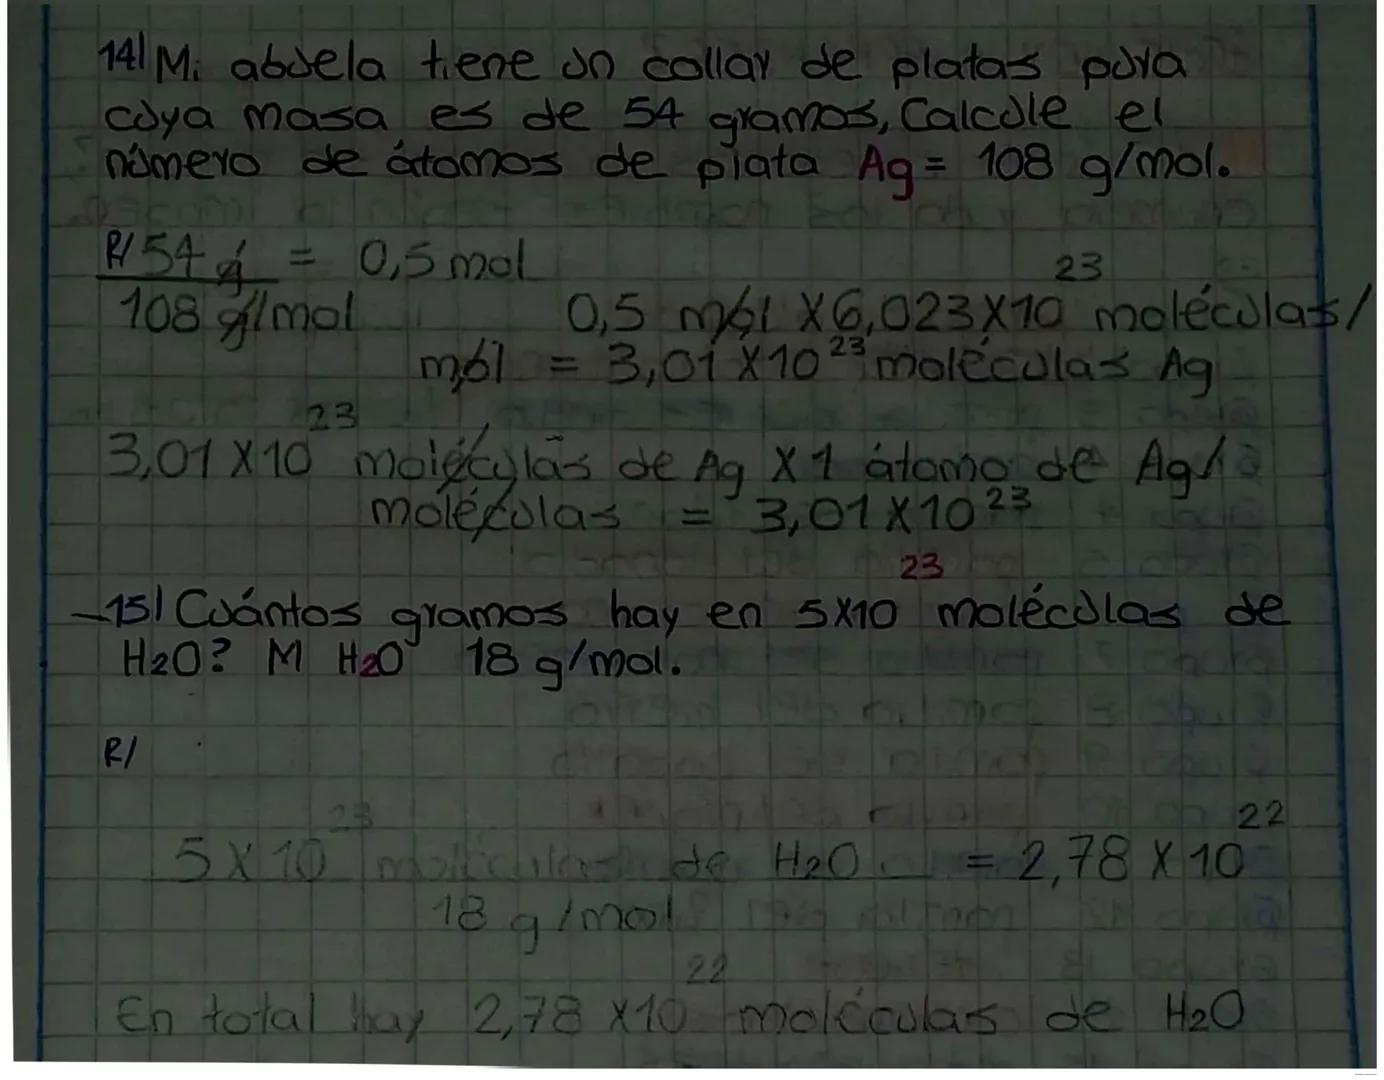 14) Mi abuela tiene un collar de platas pura
cuya masa es de 54 gramos, Calcule el
número de átomos de plata Ag = 108 g/mol.
R/ 54 g = 0,5 mol
108 g/mol
0,5 mol X 6,023 X 10²³ moléculas/
mol = 3,01 X 10²³ moléculas Ag
3,01 X 10²³ moléculas de Ag X 1 átomo de Ag/
moléculas = 3,01 X 10²³
15) Cuántos gramos hay en 5X10²³ moléculas de
H2O? M H2O 18 g/mol.
R/
5 X 10²³ moléculas de H2O = 2,78 X 10²²
18 g/mol
En total hay 2,78 X10²² moléculas de H2O